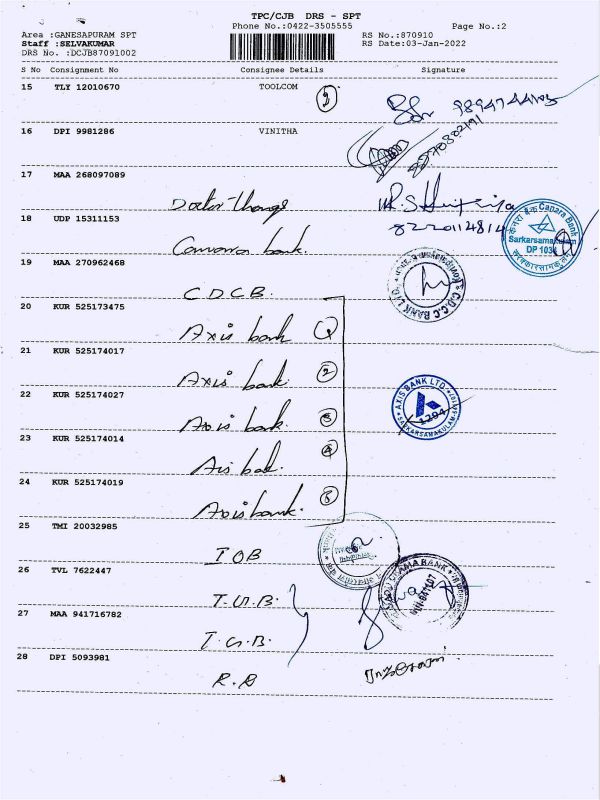 TPC/CJB DRS - SPT
Phone No.:0422-3505555 Page No.:2
Area :GANESAPURAM SPT RS No.:870910
Staff :SELVAKUMAR RS Date:03-Jan-2022
DRS No. :DCJB87091002
S No Consignment No Consignee Details Signature
15 TLY 12010670 TOOLCOM
16 DPI 9981286 VINITHA
17 MAA 268097089
18 UDP 15311153
8220114814
Canara Bank
Sarkarsamakulam
DP 1034
bank.
19 MAA 270962468
C.D.C.C BANK LTD
C D C B.
20 KUR 525173475
Axis bank 1
21 KUR 525174017
Axis bank 2
22 KUR 525174027
AXIS BANK LTD
SARKARSAMAKULAM
1204
Axis bank. 3
23 KUR 525174014
4
24 KUR 525174019
Axis bank. 5
25 TMI 20032985
IOB
26 TVL 7622447
GRAMA BANK
T.G.B.
27 MAA 941716782
T.G.B.
28 DPI 5093981